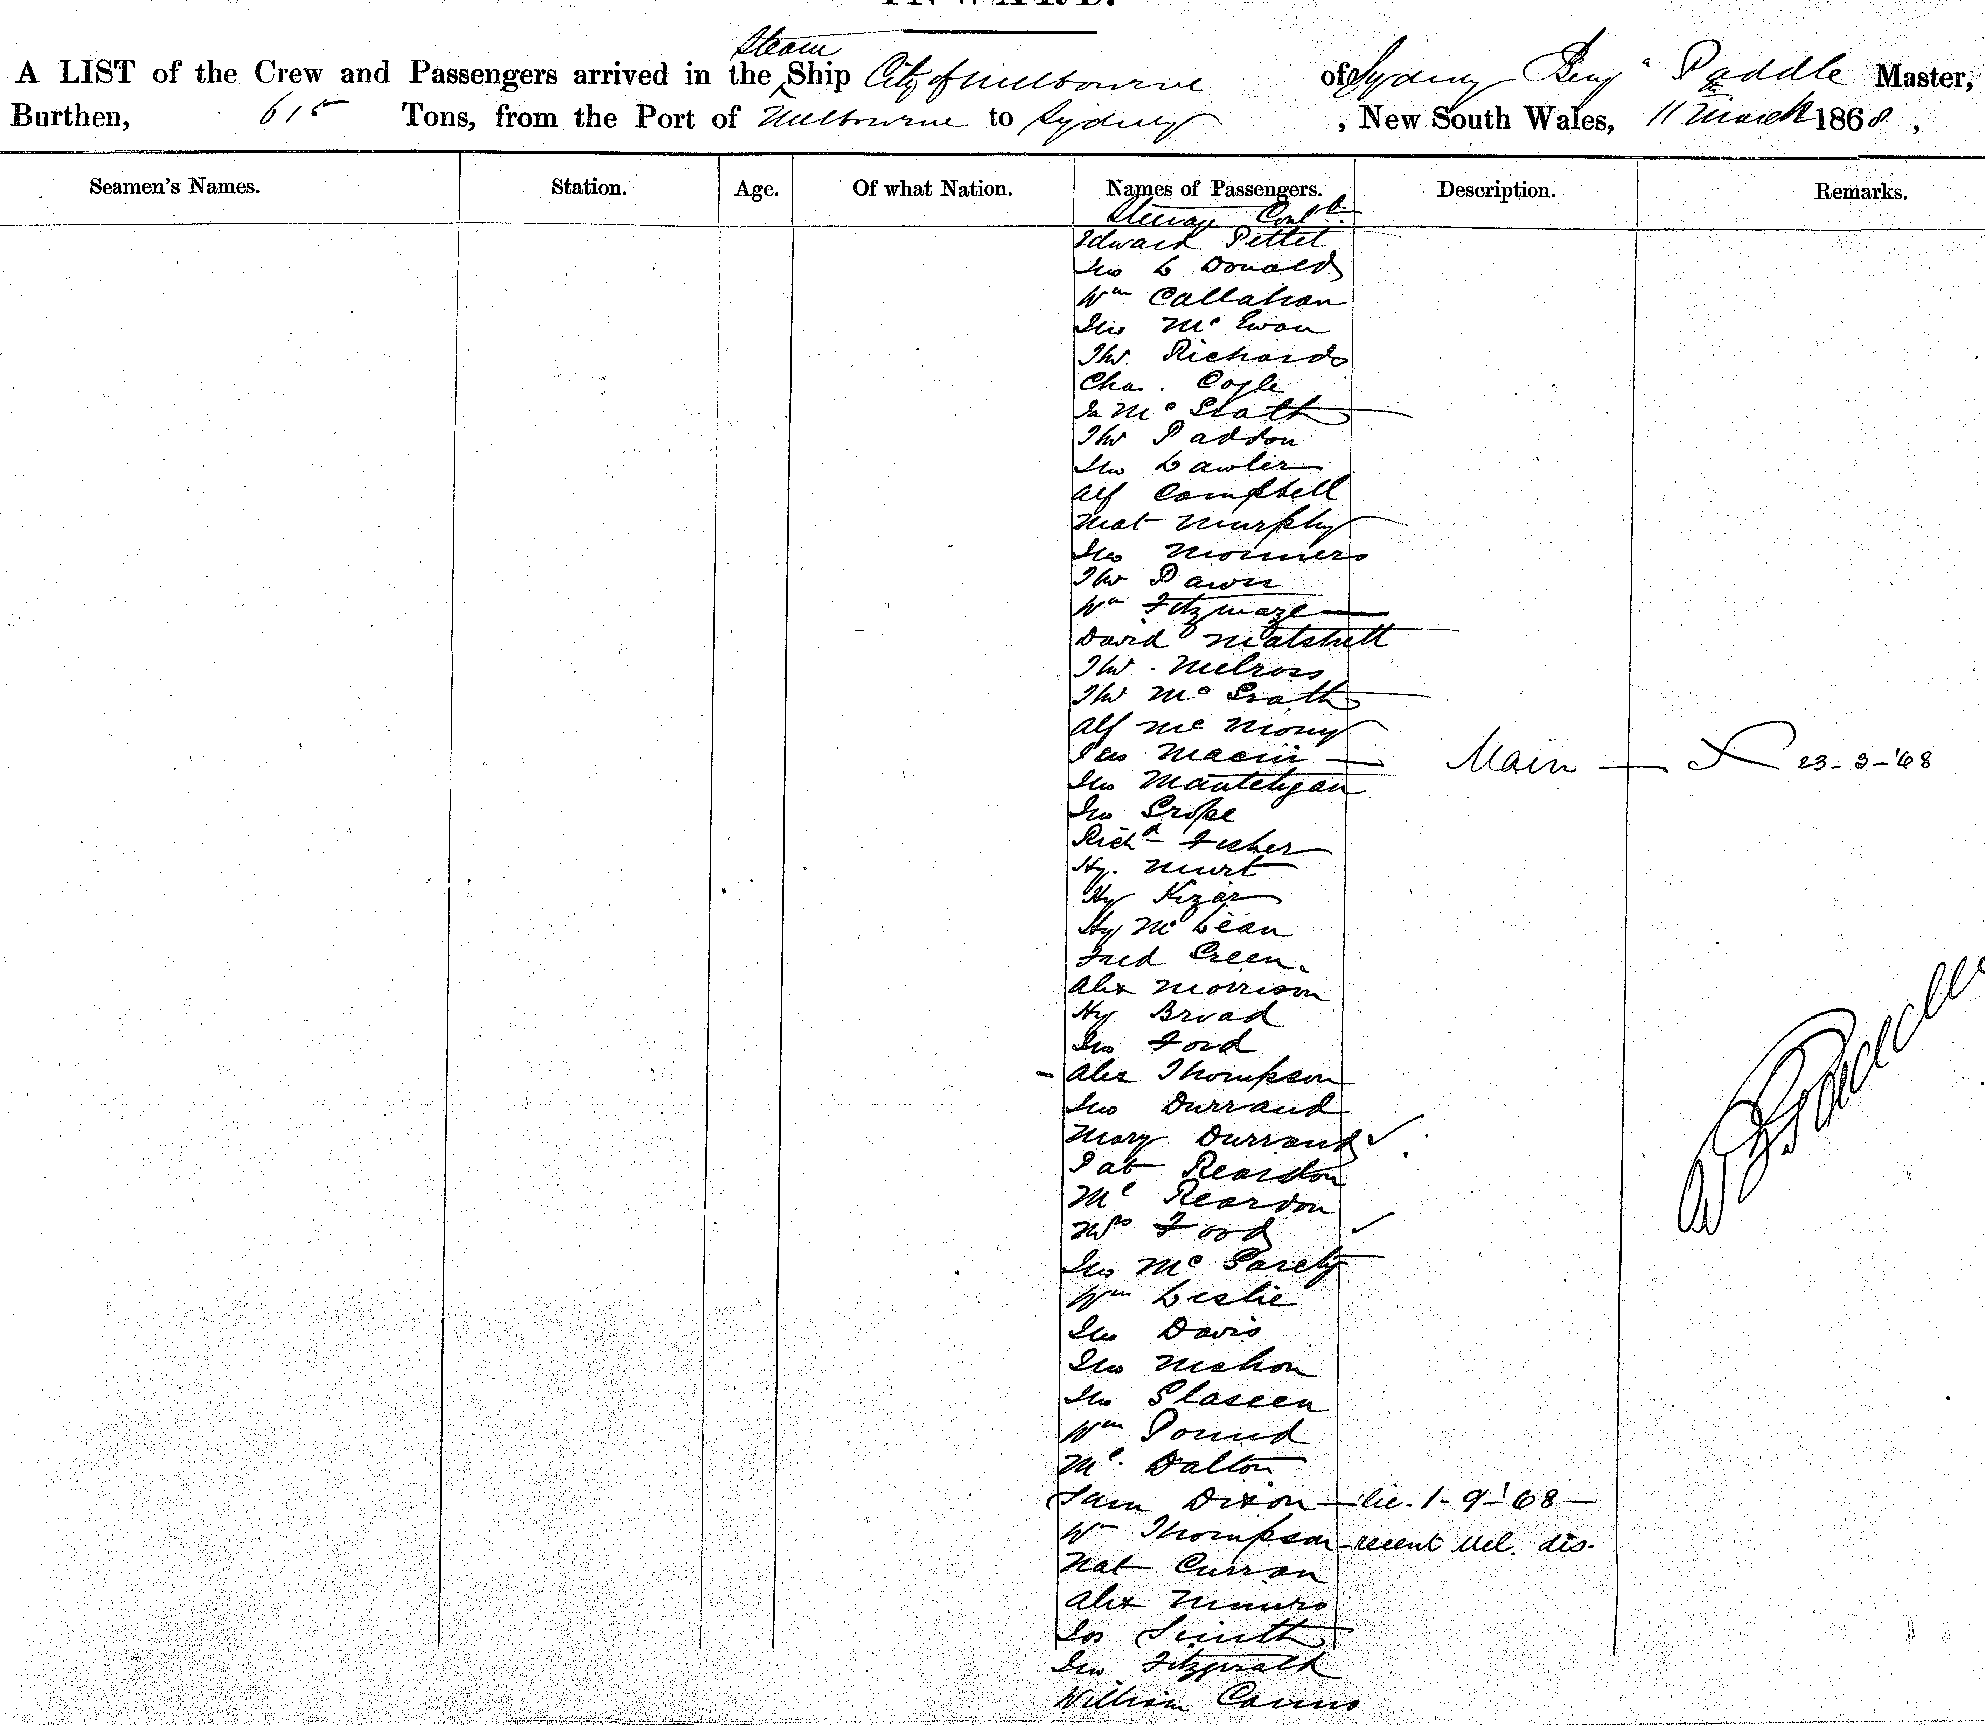 INWARD.
Steam
A LIST of the Crew and Passengers arrived in the Ship City of Melbourne of Sydney Benj n Paddle Master,
Burthen, 615 Tons, from the Port of Melbourne to Sydney , New South Wales, 11 March 1868,
Seamen's Names. Station. Age. Of what Nation. Names of Passengers. Description. Remarks.
Steerage Cont d
Edward Pettet
Jno L Donald
Wm Callahan
Jno Mc Ewan
Tho Richards
Cha. Cogle
Mc Grath
Tho Paddon
Jno Lawler
Alf Campbell
Mat Murphy
Jno
Tho Pawn
Wm
David
Tho. Melross
Tho Mc Grath
Alf Mc
Main 23-3-'68
Jno
Jno Grope
Richd Fisher
Hy. Murt
Hy Kizar
Hy Mc Lean
Fred Green.
Alex Morrison
Hy Broad
Jno Ford
Alex Thompson
Jno Durrand
Mary Durrand
Pat Reardon
Ml Reardon
Mrs Ford
Jno Mc
Wm Leslie
Jno Davis
Jno Mehon
Jno
Wm Pound
Ml. Dalton
Sam Dixon 1-9-'68
Wm Thompson recent dis.
Nat Curran
Alex Munro
Jos Smith
Jno Fitzgerald
William
B Paddle